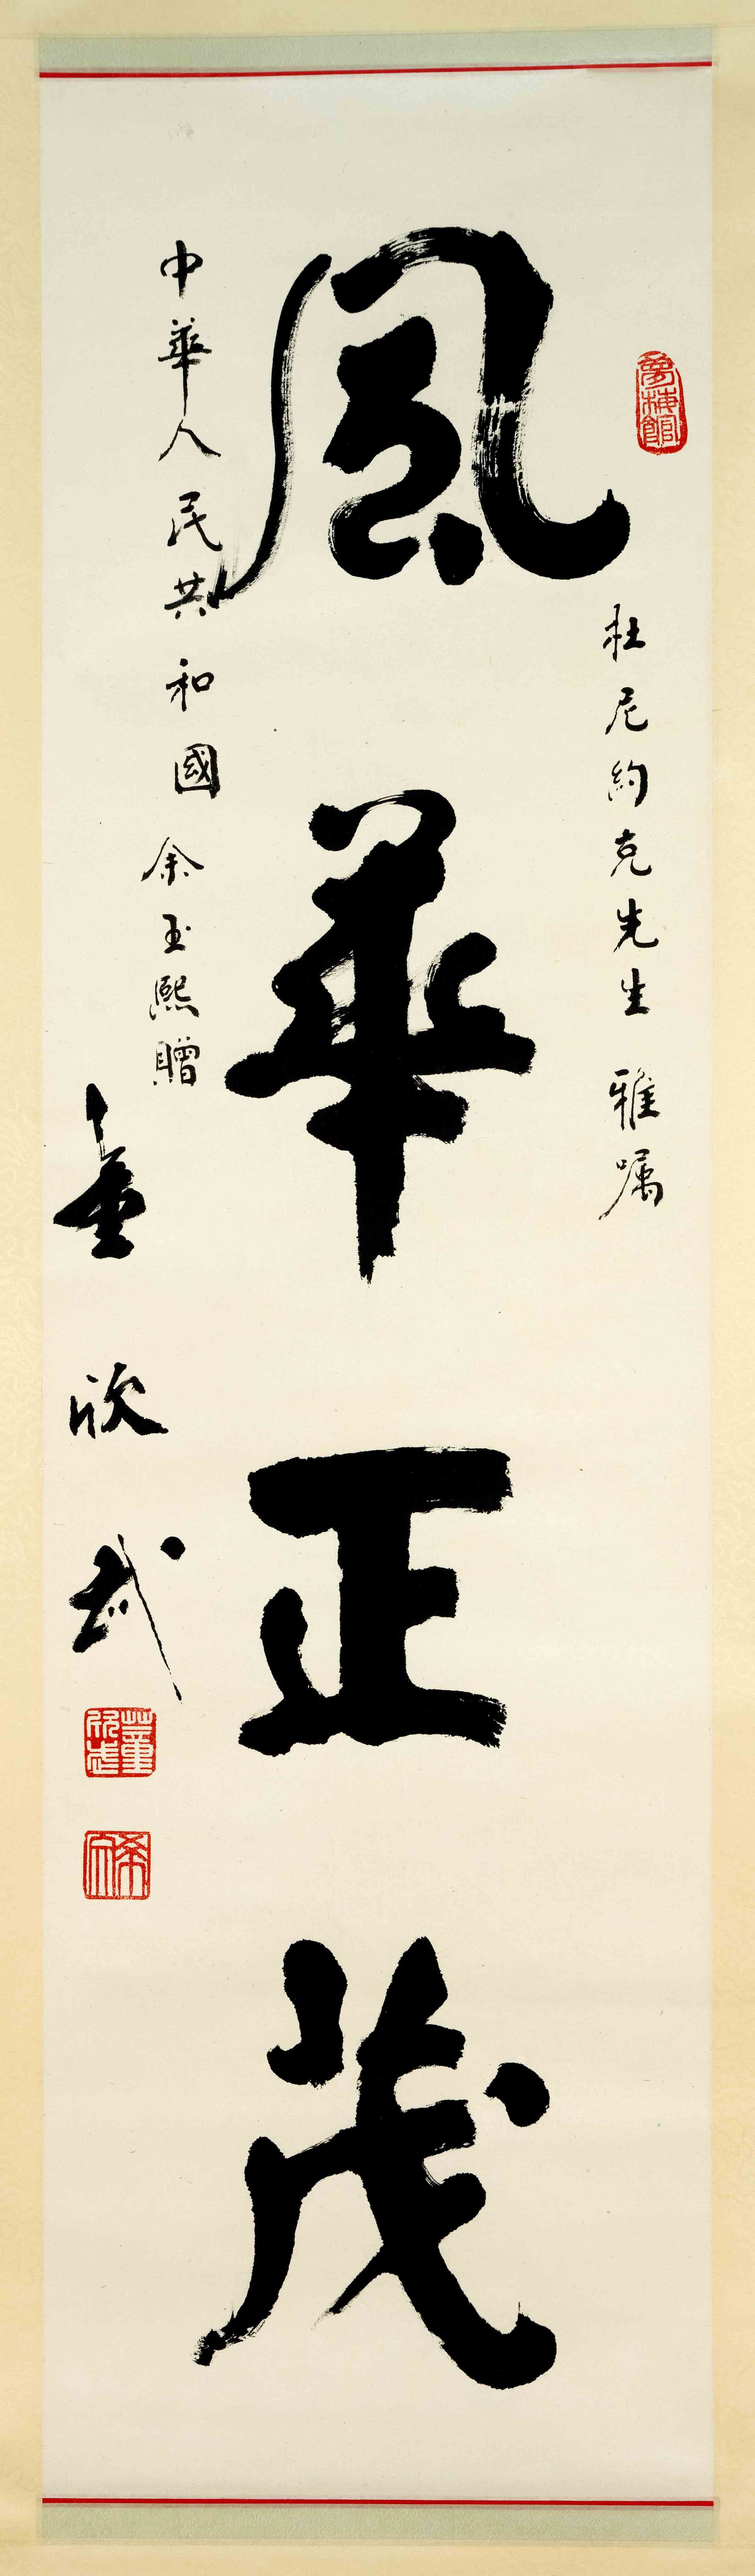 杜尼約克先生 雅嘱
風華正茂
中華人民共和國 余玉熙贈
董欣武
董欣武